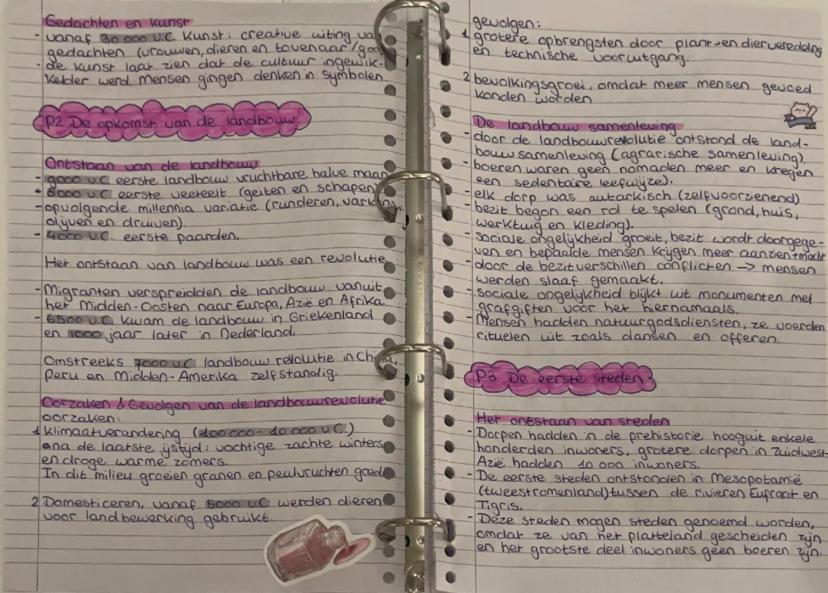 Gedachten en kunst
- vanaf 30 000 v.C. kunst: creative uiting van
gedachten (vrouwen, dieren en tovenaar/god
- de kunst laat zien dat de cultuur ingewik-
kelder werd. Mensen gingen denken in symbolen
P2 De opkomst van de landbouw
Ontstaan van de landbouw
- 9000 v.C. eerste landbouw vruchtbare halve maan
- 8000 v.C. eerste veeteelt (geiten en schapen)
- opvolgende millennia variatie (runderen, varkens,
olijven en druiven)
- 4000 v.C. eerste paarden.
Het ontstaan van landbouw was een revolutie
- Migranten verspreidden de landbouw vanuit
het Midden-Oosten naar Europa, Azië en Afrika.
- 6500 v.C. kwam de landbouw in Griekenland
en 1000 jaar later in Nederland.
Omstreeks 7000 v.C. landbouw revolutie in China,
Peru en Midden-Amerika zelfstandig.
Oorzaken & Gevolgen van de landbouwrevolutie
oorzaken:
1 klimaatverandering (200 000 - 10 000 v.C.)
na de laatste ijstijd: vochtige zachte winters
en droge warme zomers.
In dit milieu groeien granen en peulvruchten goed
2 Domesticeren, vanaf 5000 v.C. werden dieren
voor landbewerking gebruikt.
gevolgen:
1 grotere opbrengsten door plant- en dierveredeling
en technische vooruitgang.
2 bevolkingsgroei, omdat meer mensen gevoed
konden worden
De landbouw samenleving
- door de landbouwrevolutie ontstond de land-
bouwsamenleving (agrarische samenleving)
- boeren waren geen nomaden meer en kregen
een sedentaire leefwijze).
- elk dorp was autarkisch (zelfvoorzienend)
- bezit begon een rol te spelen (grond, huis,
werktuig en kleding).
- sociale ongelijkheid groeit, bezit wordt doorgege-
ven en bepaalde mensen krijgen meer aanzien + macht
- door de bezitverschillen conflicten → mensen
werden slaaf gemaakt.
- sociale ongelijkheid blijkt uit monumenten met
grafgiften voor het hiernamaals.
- Mensen hadden natuurgodsdiensten, ze voerden
rituelen uit zoals dansen en offeren.
P3 De eerste steden
Het ontstaan van steden
- Dorpen hadden in de prehistorie hooguit enkele
honderden inwoners, grotere dorpen in Zuidwest
Azië hadden 10 000 inwoners.
- De eerste steden ontstonden in Mesopotamië
(tweestromenland) tussen de rivieren Eufraat en
Tigris.
- Deze steden mogen steden genoemd worden,
omdat ze van het platteland gescheiden zijn
en het grootste deel inwoners geen boeren zijn.